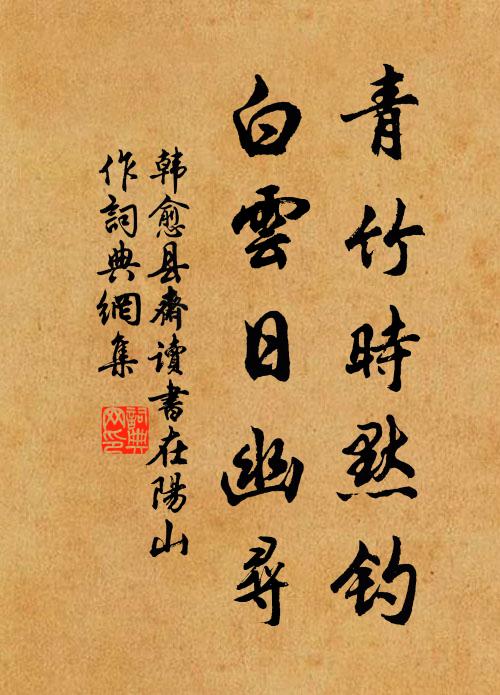 青竹時默钓
白雲日幽尋
韩愈县齋讀書在陽山
作詞典網集
詞典网印